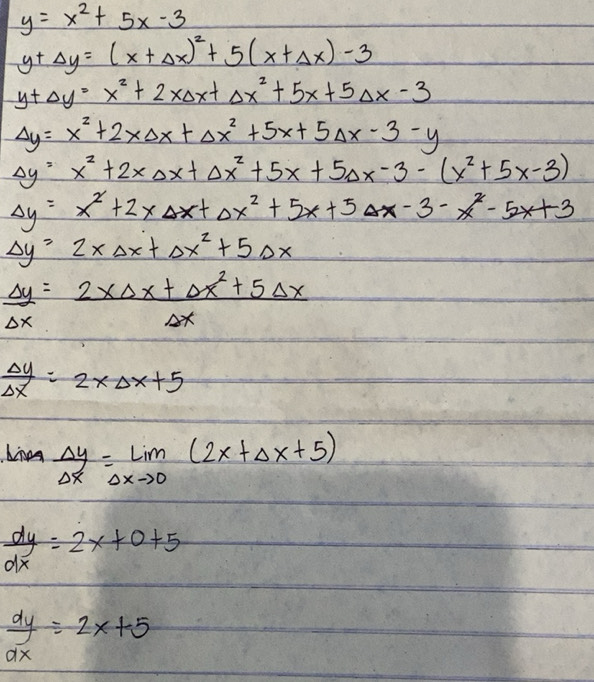 y = x² + 5x - 3
y + Δy = (x + Δx)² + 5(x + Δx) - 3
y + Δy = x² + 2xΔx + Δx² + 5x + 5Δx - 3
Δy = x² + 2xΔx + Δx² + 5x + 5Δx - 3 - y
Δy = x² + 2xΔx + Δx² + 5x + 5Δx - 3 - (x² + 5x - 3)
Δy = x² + 2xΔx + Δx² + 5x + 5Δx - 3 - x² - 5x + 3
Δy = 2xΔx + Δx² + 5Δx
Δy/Δx = (2xΔx + Δx² + 5Δx)/Δx
Δy/Δx = 2xΔx + 5
Lim Δy/Δx = Lim Δx→0 (2x + Δx + 5)
dy/dx = 2x + 0 + 5
dy/dx = 2x + 5